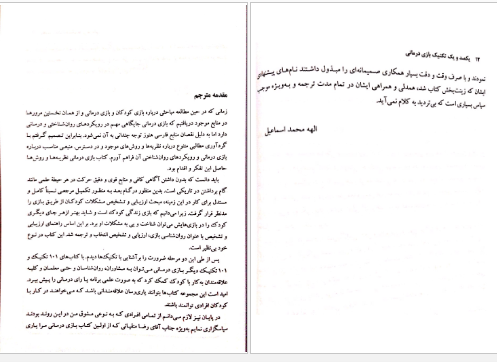 ۱۴ یکصد و یک تکنیک بازی درمانی
نمودند و با صرف وقت و دقت بسیار همکاری صمیمانه‌ای را مبذول داشتند نام‌های پیشنهادی
ایشان که زینت‌بخش کتاب شده، همدلی و همراهی ایشان در تمام مدت ترجمه و به‌ویژه موجب
سپاس بسیاری است که بی‌تردید به کلام نمی‌آید.
الهه محمد اسماعیل
مقدمه مترجم
زمانی که در حین مطالعه مباحثی درباره بازی کودکان و بازی درمانی و از همان نخستین مرورها
در منابع موجود دریافتیم که بازی درمانی جایگاهی مهم در رویکردهای روان‌شناختی و درمانی
دارد اما به دلیل نقصان منابع فارسی هنوز توجه چندانی به آن نمی‌شود. بنابراین تصمیم گرفتم با
گردآوری مطالبی متنوع درباره نظریه‌ها و روش‌های موجود و در دسترس، منبعی مناسب درباره
بازی درمانی و رویکردهای روان‌شناختی آن فراهم آورم. کتاب بازی درمانی نظریه‌ها و روش‌ها
حاصل این تفکر و اقدام بود.
باید دانست که بدون داشتن آگاهی کافی و منابع قوی و دقیق حرکت در هر حیطه علمی مانند
گام برداشتن در تاریکی است. بدین منظور در گام بعد به منظور تکمیل مرجعی نسبتاً کامل و
مستدل برای کار در این زمینه، مبحث ارزیابی و تشخیص مشکلات کودکان از طریق بازی را
مدنظر قرار گرفت. زیرا می‌دانیم که بازی زندگی کودک است و شاید بهتر از هر جای دیگری
کودک را در بازی‌هایش می‌توان شناخت و پی به مشکلات او برد. بر این اساس راهنمای ارزیابی
و تشخیص با عنوان روان‌شناسی بازی، ارزیابی و تشخیص انتخاب و ترجمه شد. این کتاب در نوع
خود بی‌نظیر است.
پس از طی این دو مرحله ضرورت را بر آشنایی با تکنیک‌ها دیدم. با کتاب‌های ۱۰۱ تکنیک و
۱۰۱ تکنیک دیگر بازی درمانی می‌توان به مشاوران، روان‌شناسان و حتی معلمان و کلیه
علاقمندان به کار با کودک کمک کرد که به صورت علمی برنامه بازی درمانی را پیش ببرد.
امید است این مجموعه کتاب‌ها بتوانند یاری‌رسان علاقه‌مندانی باشد که می‌خواهند در کار با
کودکان افرادی توانمند باشند.
در پایان نیز لازم می‌دانم از تمامی افرادی که به نوعی مشوق من در این روند بودند
سپاسگزاری نمایم به‌ویژه جناب آقای رضا متقیانی که از اولین کتاب بازی درمانی مرا یاری